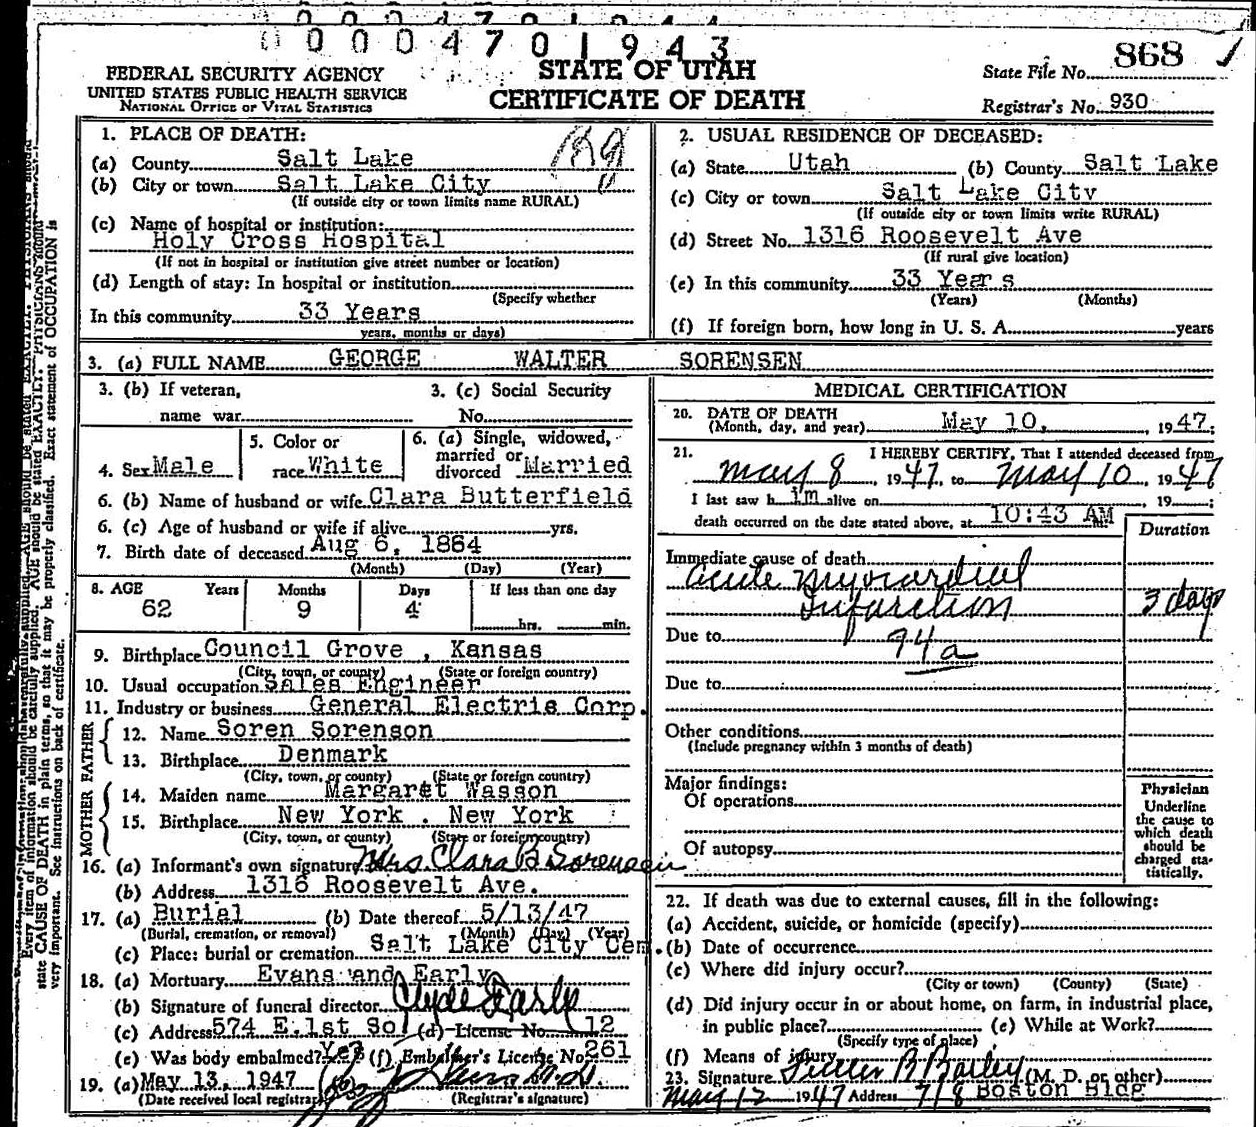 0 0 0 4 7 0 1 9 4 3
868
FEDERAL SECURITY AGENCY
UNITED STATES PUBLIC HEALTH SERVICE
NATIONAL OFFICE OF VITAL STATISTICS
STATE OF UTAH
CERTIFICATE OF DEATH
State File No. 868
Registrar's No. 930
1. PLACE OF DEATH:
(a) County Salt Lake
(b) City or town Salt Lake City
(If outside city or town limits name RURAL)
(c) Name of hospital or institution:
Holy Cross Hospital
(If not in hospital or institution give street number or location)
(d) Length of stay: In hospital or institution
(Specify whether
In this community 33 Years
years, months or days)
2. USUAL RESIDENCE OF DECEASED:
(a) State Utah (b) County Salt Lake
(c) City or town Salt Lake City
(If outside city or town limits write RURAL)
(d) Street No. 1316 Roosevelt Ave
(If rural give location)
(e) In this community 33 Years
(Years) (Months)
(f) If foreign born, how long in U. S. A. years
3. (a) FULL NAME GEORGE WALTER SORENSEN
3. (b) If veteran, name war
3. (c) Social Security No.
4. Sex Male
5. Color or race White
6. (a) Single, widowed, married or divorced Married
6. (b) Name of husband or wife Clara Butterfield
6. (c) Age of husband or wife if alive yrs.
7. Birth date of deceased Aug 6, 1884
(Month) (Day) (Year)
8. AGE Years Months Days If less than one day
62 9 4 hrs. min.
9. Birthplace Council Grove , Kansas
(City, town, or county) (State or foreign country)
10. Usual occupation Sales Engineer
11. Industry or business General Electric Corp.
FATHER
12. Name Soren Sorenson
13. Birthplace Denmark
(City, town, or county) (State or foreign country)
MOTHER
14. Maiden name Margaret Wasson
15. Birthplace New York . New York
(City, town, or county) (State or foreign country)
16. (a) Informant's own signature Mrs. Clara B Sorensen
(b) Address 1316 Roosevelt Ave.
17. (a) Burial (b) Date thereof 5/13/47
(Burial, cremation, or removal) (Month) (Day) (Year)
(c) Place: burial or cremation Salt Lake City Cem.
18. (a) Mortuary Evans and Early
(b) Signature of funeral director Clyde Early
(c) Address 574 E.1st So (d) License No. 12
(e) Was body embalmed? Yes (f) Embalmer's License No. 261
19. (a) May 13, 1947
(Date received local registrar) (Registrar's signature)
MEDICAL CERTIFICATION
20. DATE OF DEATH
(Month, day, and year) May 10, , 1947;
21. I HEREBY CERTIFY, That I attended deceased from
May 8 , 1947, to May 10 , 1947
I last saw him alive on , 19 ;
death occurred on the date stated above, at 10:43 AM
Duration
Immediate cause of death
Acute Myocardical
Infarction 3 days
Due to 94a
Due to
Other conditions
(Include pregnancy within 3 months of death)
Major findings:
Of operations
Of autopsy
Physician
Underline
the cause to
which death
should be
charged sta-
tistically.
22. If death was due to external causes, fill in the following:
(a) Accident, suicide, or homicide (specify)
(b) Date of occurrence
(c) Where did injury occur?
(City or town) (County) (State)
(d) Did injury occur in or about home, on farm, in industrial place,
in public place? (e) While at Work?
(Specify type of place)
(f) Means of injury
23. Signature B Bailey (M. D. or other)
May 12 1947 Address 718 Boston Bldg
state CAUSE OF DEATH in plain terms, so that it may be properly classified. Exact statement of OCCUPATION is
very important. See instructions on back of certificate.